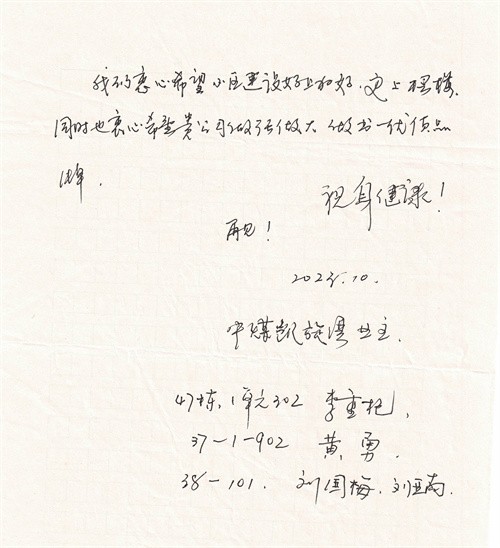 我们衷心希望小区建设好上加好,更上一层楼,
同时也衷心希望贵公司做强做大 做出一优质品
牌.
祝身健康!
再见!
2023.10.
中煤凯旋湾业主.
47栋,1单元302 李重
37-1-902 黄勇.
38-101. 刘国梅.刘亚南.